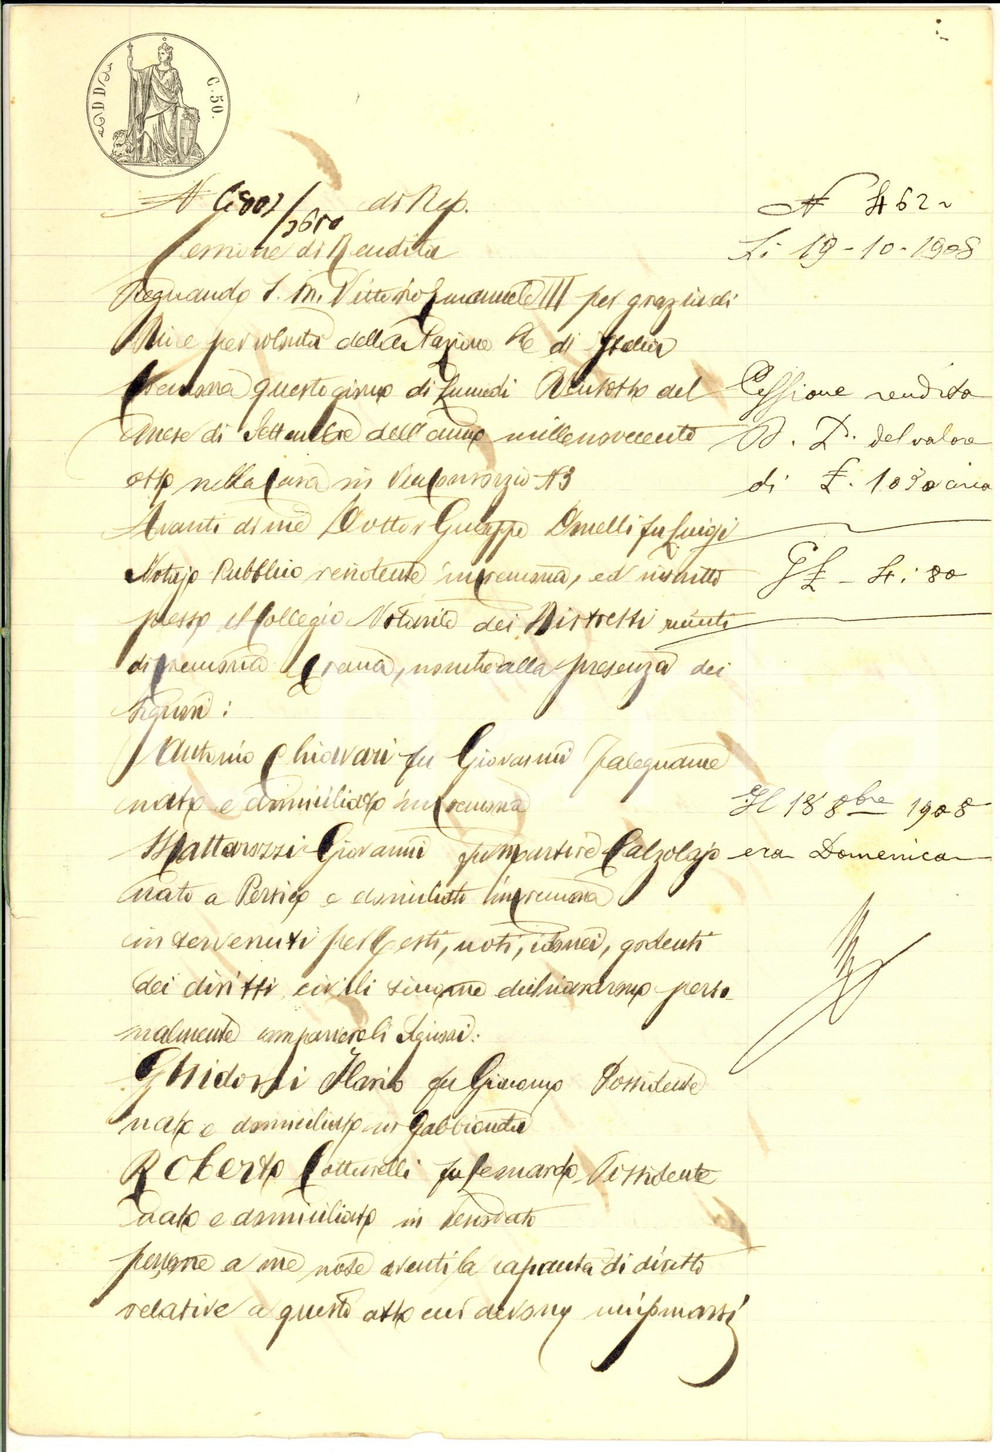 C. 50.
N di Rep.
Cessione di Rendita
Regnando S. M. Vittorio Emanuele III per grazia di
Dio e per volontà della Nazione Re di Italia
Cremona questo giorno di Lunedi Ventotto del
mese di Settembre dell'anno millenovecento
otto nella Casa in Via Consorzio N 3
Avanti di me Dottor Giuseppe Donelli fu Luigi
Notajo Pubblico residente in Cremona, ed inscritto
presso il Collegio Notarile dei Distretti riuniti
di Cremona Crema, nonchè alla presenza dei
Signori:
Antonio Chiovari fu Giovanni Falegname
nato e domiciliato in Cremona
Mattarozzi Giovanni fu Calzolajo
nato a Persico e domiciliato in Cremona
intervenuti per Testi, noti, idonei, godenti
dei diritti civili siccome dichiararono perso
nalmente comparvero li Signori:
Ghidorsi Ilario fu Giacomo Possidente
nato e domiciliato in Gabbioneta
Roberto Cotturelli fu Bernardo Possidente
nato e domiciliato in Vescovato
persone a me note aventi la capacità di diritto
relative a questo atto cui devono uniformarsi
N 462
Li 19-10-1908
Cessione rendita
D. P. del valore
di £. 1030 circa
£ - 4: 80
Il 18 8bre 1908
era Domenica